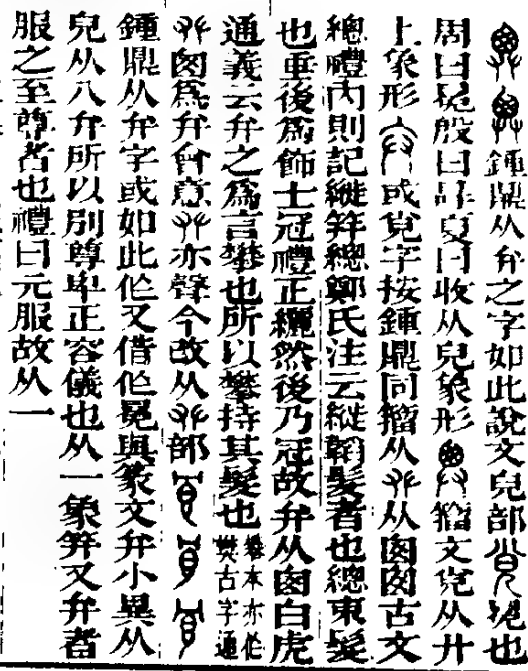 鍾鼎从弁之字如此說文皃部冕也
周曰冕殷曰吁夏曰收从皃象形籀文弁从廾
上象形或弁字按鍾鼎同籀从从囱囱古文
總禮內則記縰笄總鄭氏注云縰韜髮者也總束髮
也垂後爲飾士冠禮正纚然後乃冠故弁从囱白虎
通義云弁之爲言攀也所以攀持其髮也攀本亦作樊古字通
囱爲弁會意亦聲今改从部
鍾鼎从弁字或如此作又借作冕與篆文弁小異从
皃从八弁所以別尊卑正容儀也从一象笄又弁者
服之至尊者也禮曰元服故从一